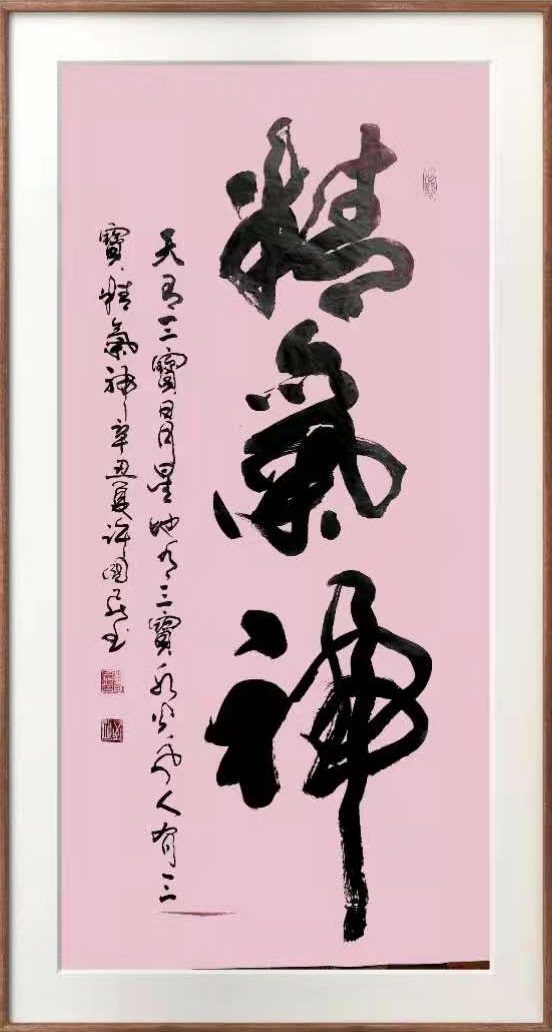 精氣神
天有三寶日月星地有三寶水火風人有三
寶精氣神辛丑夏許國書